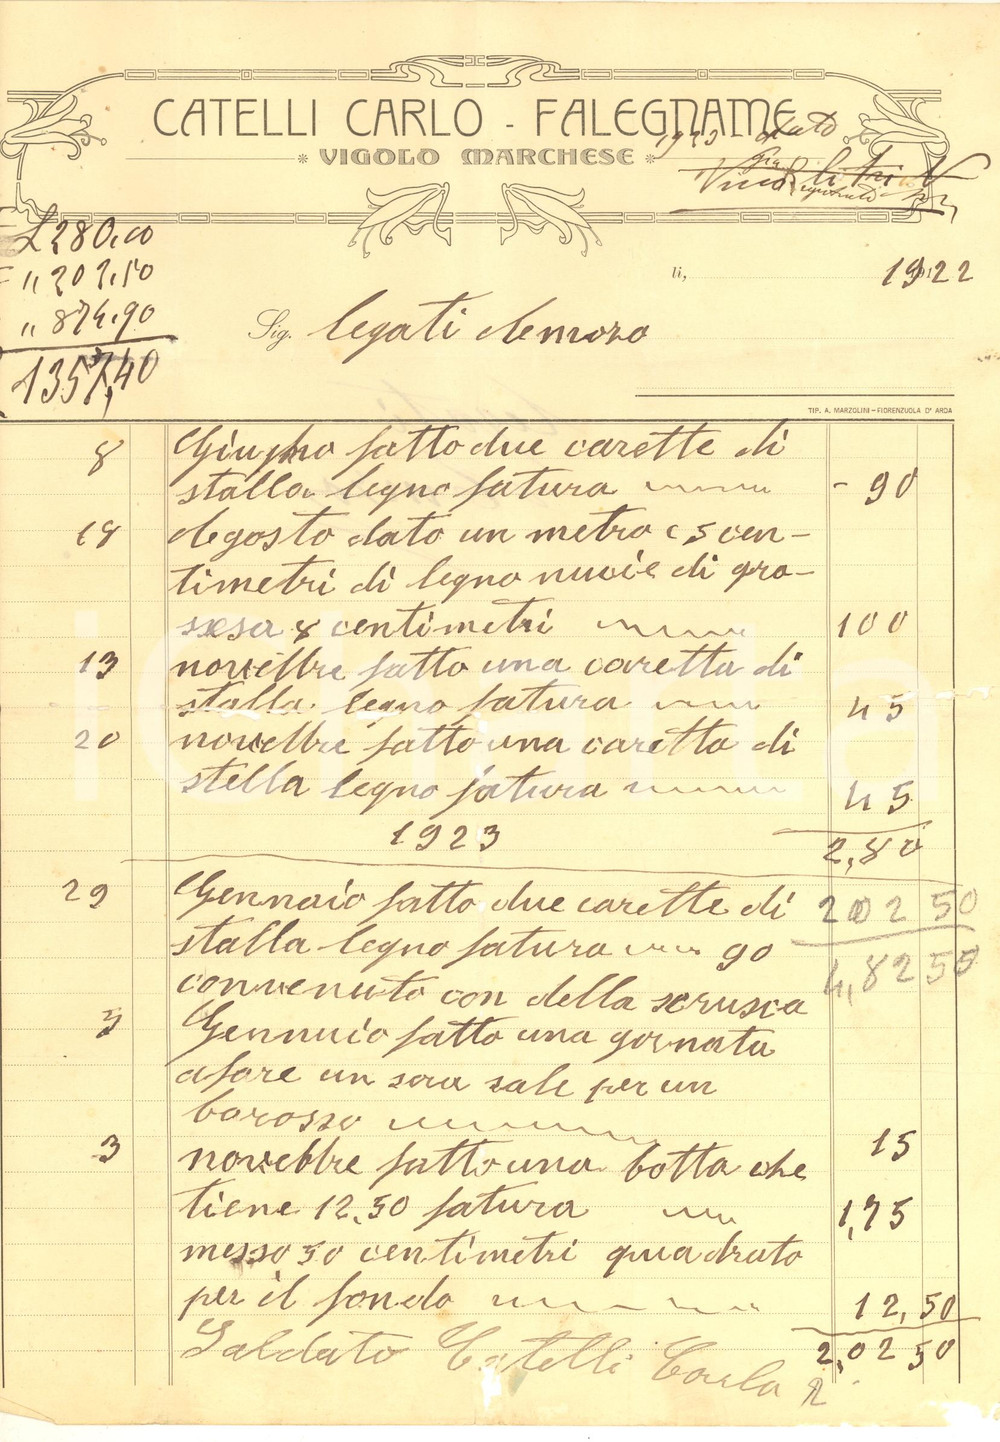 CATELLI CARLO - FALEGNAME
VIGOLO MARCHESE
1923 dato
Vino litri
£ 280,00
" 202,50
" 874,90
1357,40
li, 1922
Sig. legati demoro
TIP. A. MARZOLINI - FIORENZUOLA D' ARDA
8 Giugno fatto due carette di
stalla legno fatura - 90
18 Agosto dato un metro e 5 cen-
timetri di legno nucie di gro-
ssesa 8 centimetri 100
13 novebbre fatto una caretta di
stalla legno fatura 45
20 novebbre fatto una caretta di
stella legno fatura 45
1923 2,80
29 Gennaio fatto due carette di 202 50
stalla legno fatura 90 4,82 50
convenuto con della scrusca
5 Gennaio fatto una gornata
afare un sale per un
barosso 15
3 novebbre fatto una botta che
tiene 12.50 fatura 1,75
messo 50 centimetri quadrato
per il fondo 12,50
Saldato Catelli Carlo 2,02 50